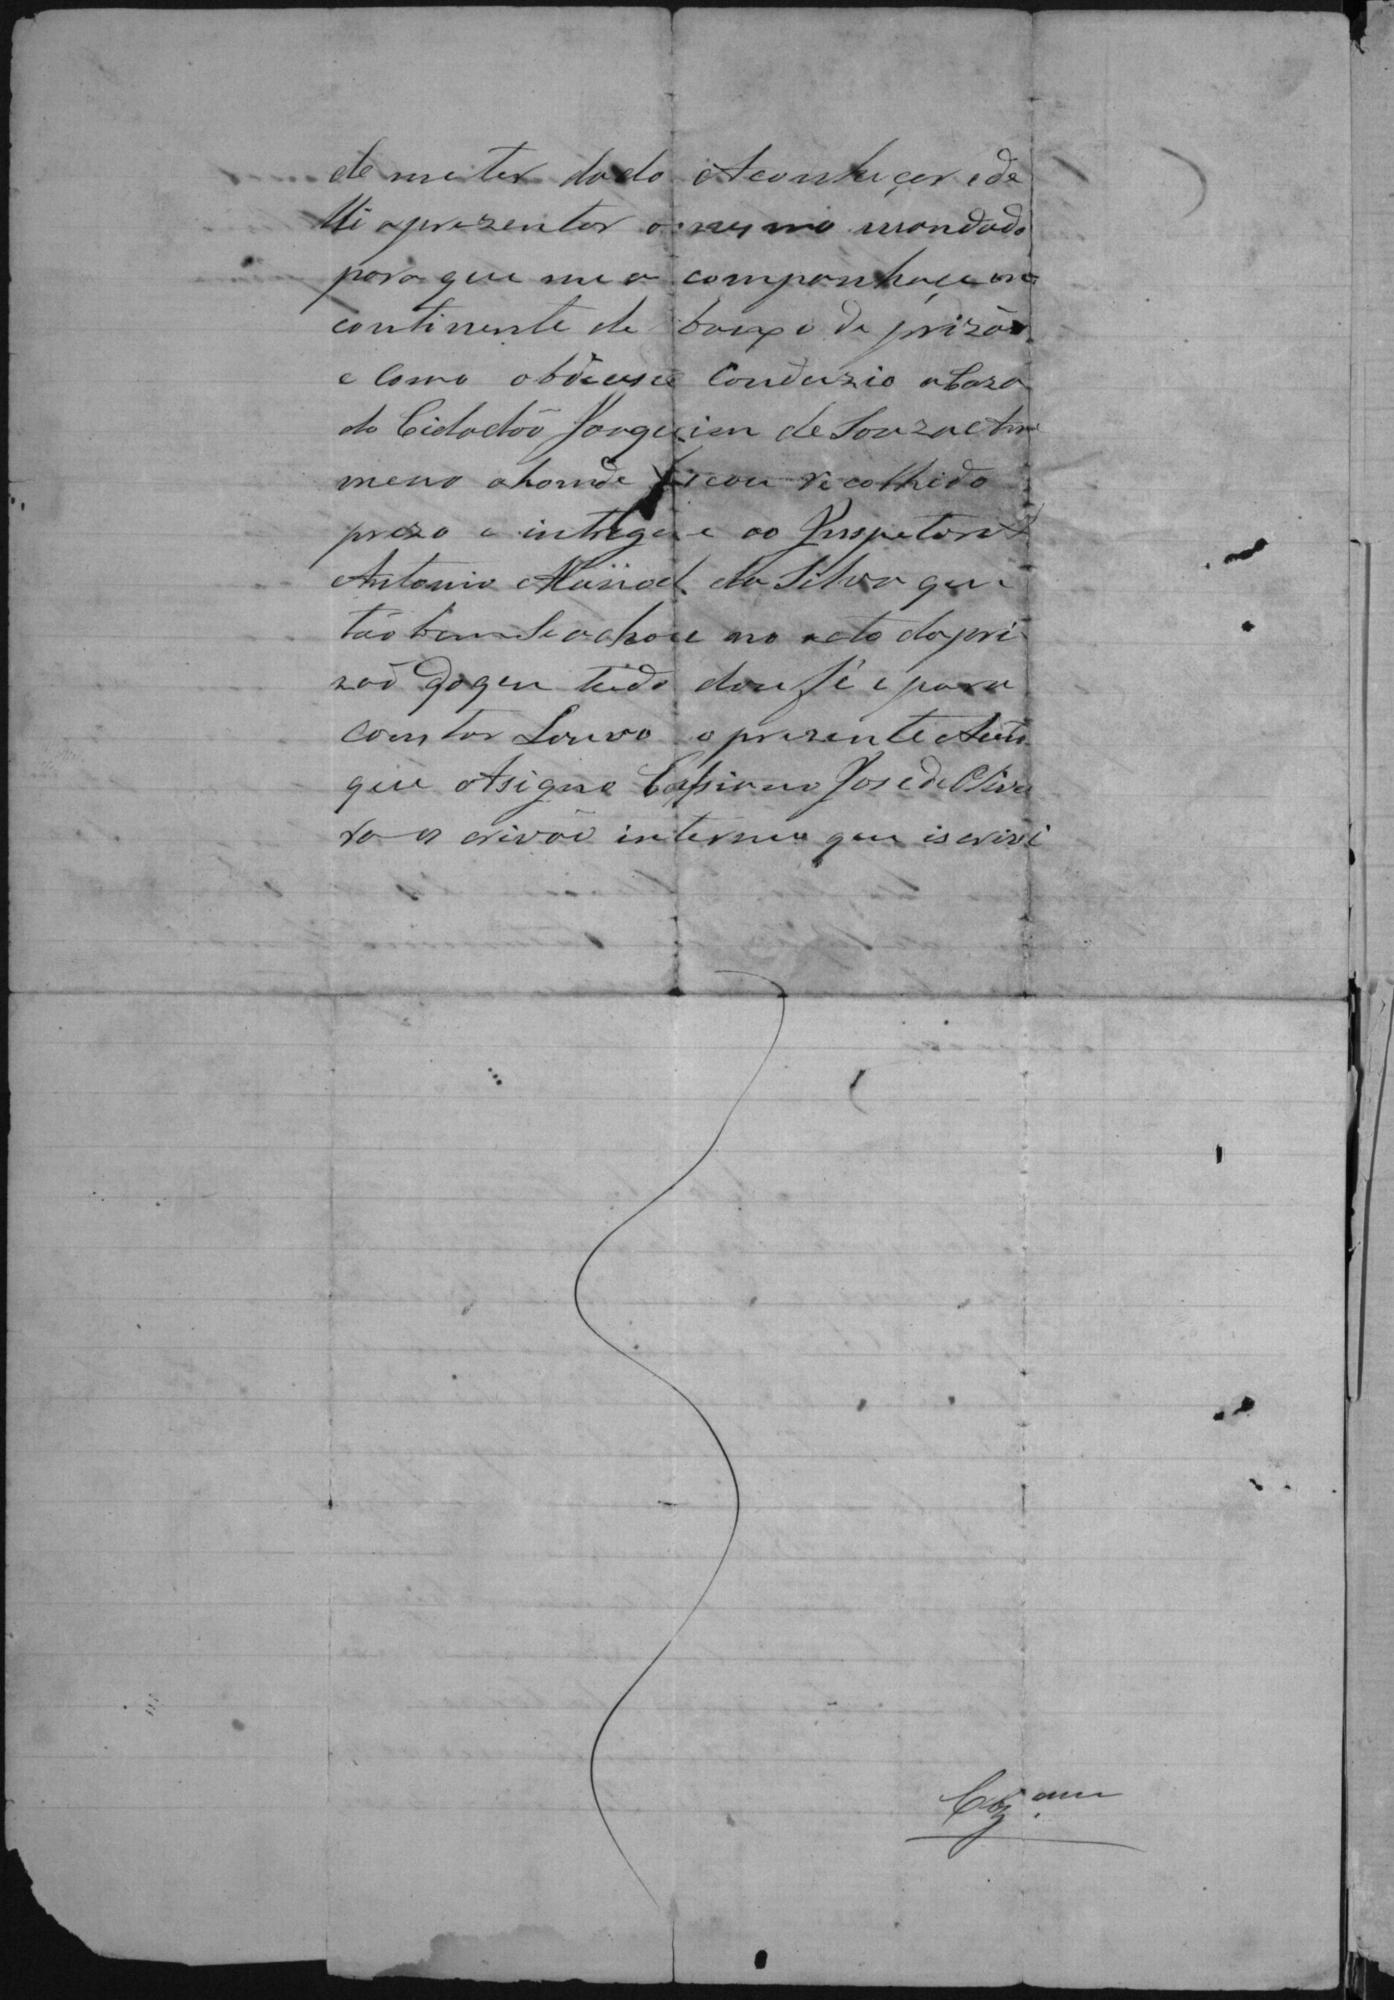 de me ter dado a Conhecer e de
lhi aprezentar o mesmo mandado
para que me a companhaçe in
continente de baixo de prizão
e como obdeuse Conduzio a Caza
do Cidadão Joaquim de Souza
meno ahonde ficou recolhido
prezo e intregue ao Inspetor
Antonio Manoel da Silva que
tão bem se achou no acto da pri
zaõ do que tudo dou fé e para
constar Lavro o prezente Auto
que Asigno Cassiano Jose de Olivei
ra es crivão interino que iscrivi